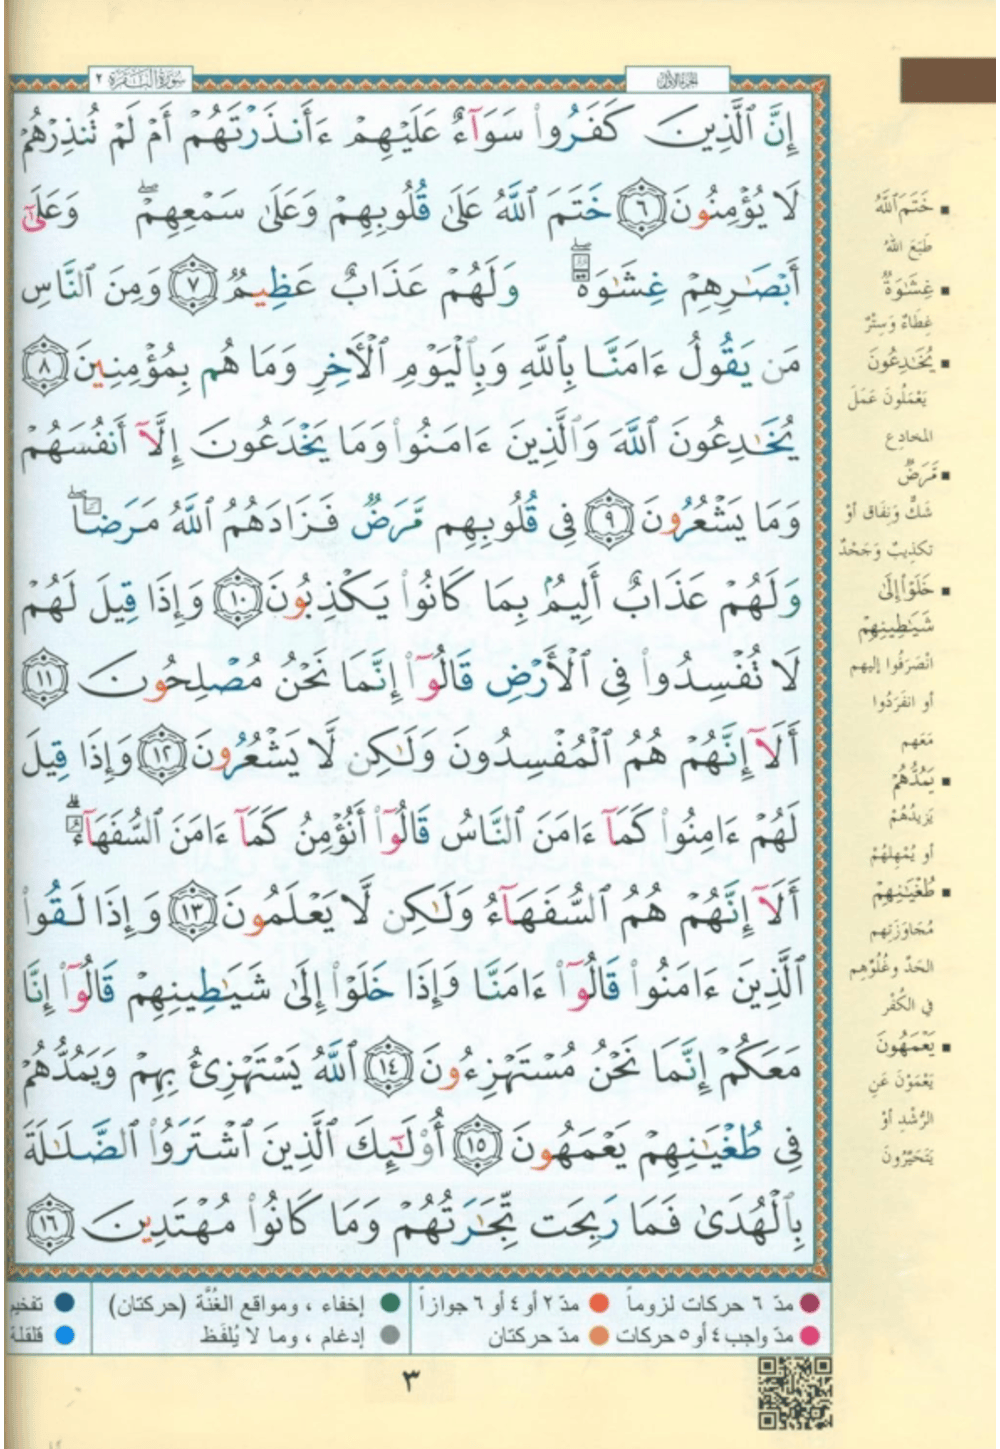 سورة البقرة ٢
الجزء الأول
إِنَّ ٱلَّذِينَ كَفَرُوا۟ سَوَآءٌ عَلَيْهِمْ ءَأَنذَرْتَهُمْ أَمْ لَمْ تُنذِرْهُمْ
لَا يُؤْمِنُونَ ٦ خَتَمَ ٱللَّهُ عَلَىٰ قُلُوبِهِمْ وَعَلَىٰ سَمْعِهِمْ ۖ وَعَلَىٰٓ
أَبْصَٰرِهِمْ غِشَٰوَةٌ ۖ وَلَهُمْ عَذَابٌ عَظِيمٌ ٧ وَمِنَ ٱلنَّاسِ
مَن يَقُولُ ءَامَنَّا بِٱللَّهِ وَبِٱلْيَوْمِ ٱلْأَخِرِ وَمَا هُم بِمُؤْمِنِينَ ٨
يُخَٰدِعُونَ ٱللَّهَ وَٱلَّذِينَ ءَامَنُوا۟ وَمَا يَخْدَعُونَ إِلَّآ أَنفُسَهُمْ
وَمَا يَشْعُرُونَ ٩ فِى قُلُوبِهِم مَّرَضٌ فَزَادَهُمُ ٱللَّهُ مَرَضًا ۖ
وَلَهُمْ عَذَابٌ أَلِيمٌۢ بِمَا كَانُوا۟ يَكْذِبُونَ ١٠ وَإِذَا قِيلَ لَهُمْ
لَا تُفْسِدُوا۟ فِى ٱلْأَرْضِ قَالُوٓا۟ إِنَّمَا نَحْنُ مُصْلِحُونَ ١١
أَلَآ إِنَّهُمْ هُمُ ٱلْمُفْسِدُونَ وَلَٰكِن لَّا يَشْعُرُونَ ١٢ وَإِذَا قِيلَ
لَهُمْ ءَامِنُوا۟ كَمَآ ءَامَنَ ٱلنَّاسُ قَالُوٓا۟ أَنُؤْمِنُ كَمَآ ءَامَنَ ٱلسُّفَهَآءُ ۗ
أَلَآ إِنَّهُمْ هُمُ ٱلسُّفَهَآءُ وَلَٰكِن لَّا يَعْلَمُونَ ١٣ وَإِذَا لَقُوا۟
ٱلَّذِينَ ءَامَنُوا۟ قَالُوٓا۟ ءَامَنَّا وَإِذَا خَلَوْا۟ إِلَىٰ شَيَٰطِينِهِمْ قَالُوٓا۟ إِنَّا
مَعَكُمْ إِنَّمَا نَحْنُ مُسْتَهْزِءُونَ ١٤ ٱللَّهُ يَسْتَهْزِئُ بِهِمْ وَيَمُدُّهُمْ
فِى طُغْيَٰنِهِمْ يَعْمَهُونَ ١٥ أُو۟لَٰٓئِكَ ٱلَّذِينَ ٱشْتَرَوُا۟ ٱلضَّلَٰلَةَ
بِٱلْهُدَىٰ فَمَا رَبِحَت تِّجَٰرَتُهُمْ وَمَا كَانُوا۟ مُهْتَدِينَ ١٦
خَتَمَ ٱللَّهُ
طَبَعَ اللهُ
غِشَٰوَةٌ
غِطَاءٌ وَسِتْرٌ
يُخَٰدِعُونَ
يَعْمَلُونَ عَمَلَ
المخادِعِ
مَّرَضٌ
شَكٌّ وَنِفَاق أوْ
تكذِيبٌ وَجَحْدٌ
خَلَوْا۟ إِلَىٰ
شَيَٰطِينِهِمْ
انْصَرَفُوا إليهم
أو انفَرَدُوا
مَعَهم
يَمُدُّهُمْ
يَزيدُهُمْ
أو يُمْهِلهُمْ
طُغْيَٰنِهِمْ
مُجَاوَزَتِهم
الحَدَّ وغُلُوِّهِم
في الكُفْر
يَعْمَهُونَ
يَعْمَوْنَ عَنِ
الرُّشْدِ أوْ
يَتَحَيَّرُونَ
مدّ ٦ حركات لزوماً مدّ ٢ أو ٤ أو ٦ جوازاً إخفاء ، ومواقع الغُنَّة (حركتان) تفخيم
مدّ واجب ٤ أو ٥ حركات مدّ حركتان إدغام ، وما لا يُلفَظ قلقلة
٣